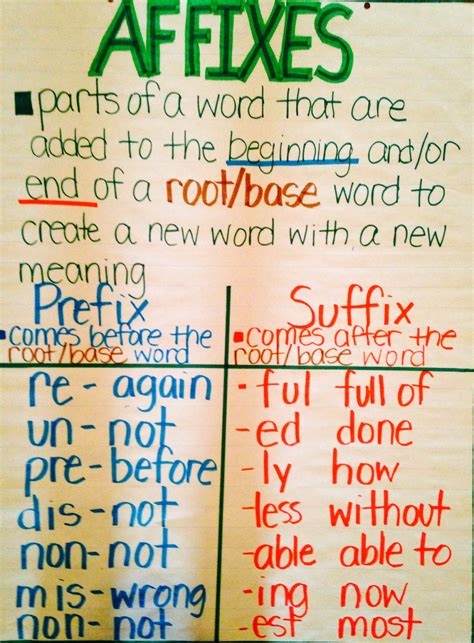 AFFIXES
parts of a word that are
added to the beginning and/or
end of a root/base word to
create a new word with a new
meaning
Prefix
comes before the
root/base word
re- again
un- not
pre- before
dis- not
non- not
mis- wrong
non- not
Suffix
comes after the
root/base word
-ful full of
-ed done
-ly how
-less without
-able able to
-ing now
-est most